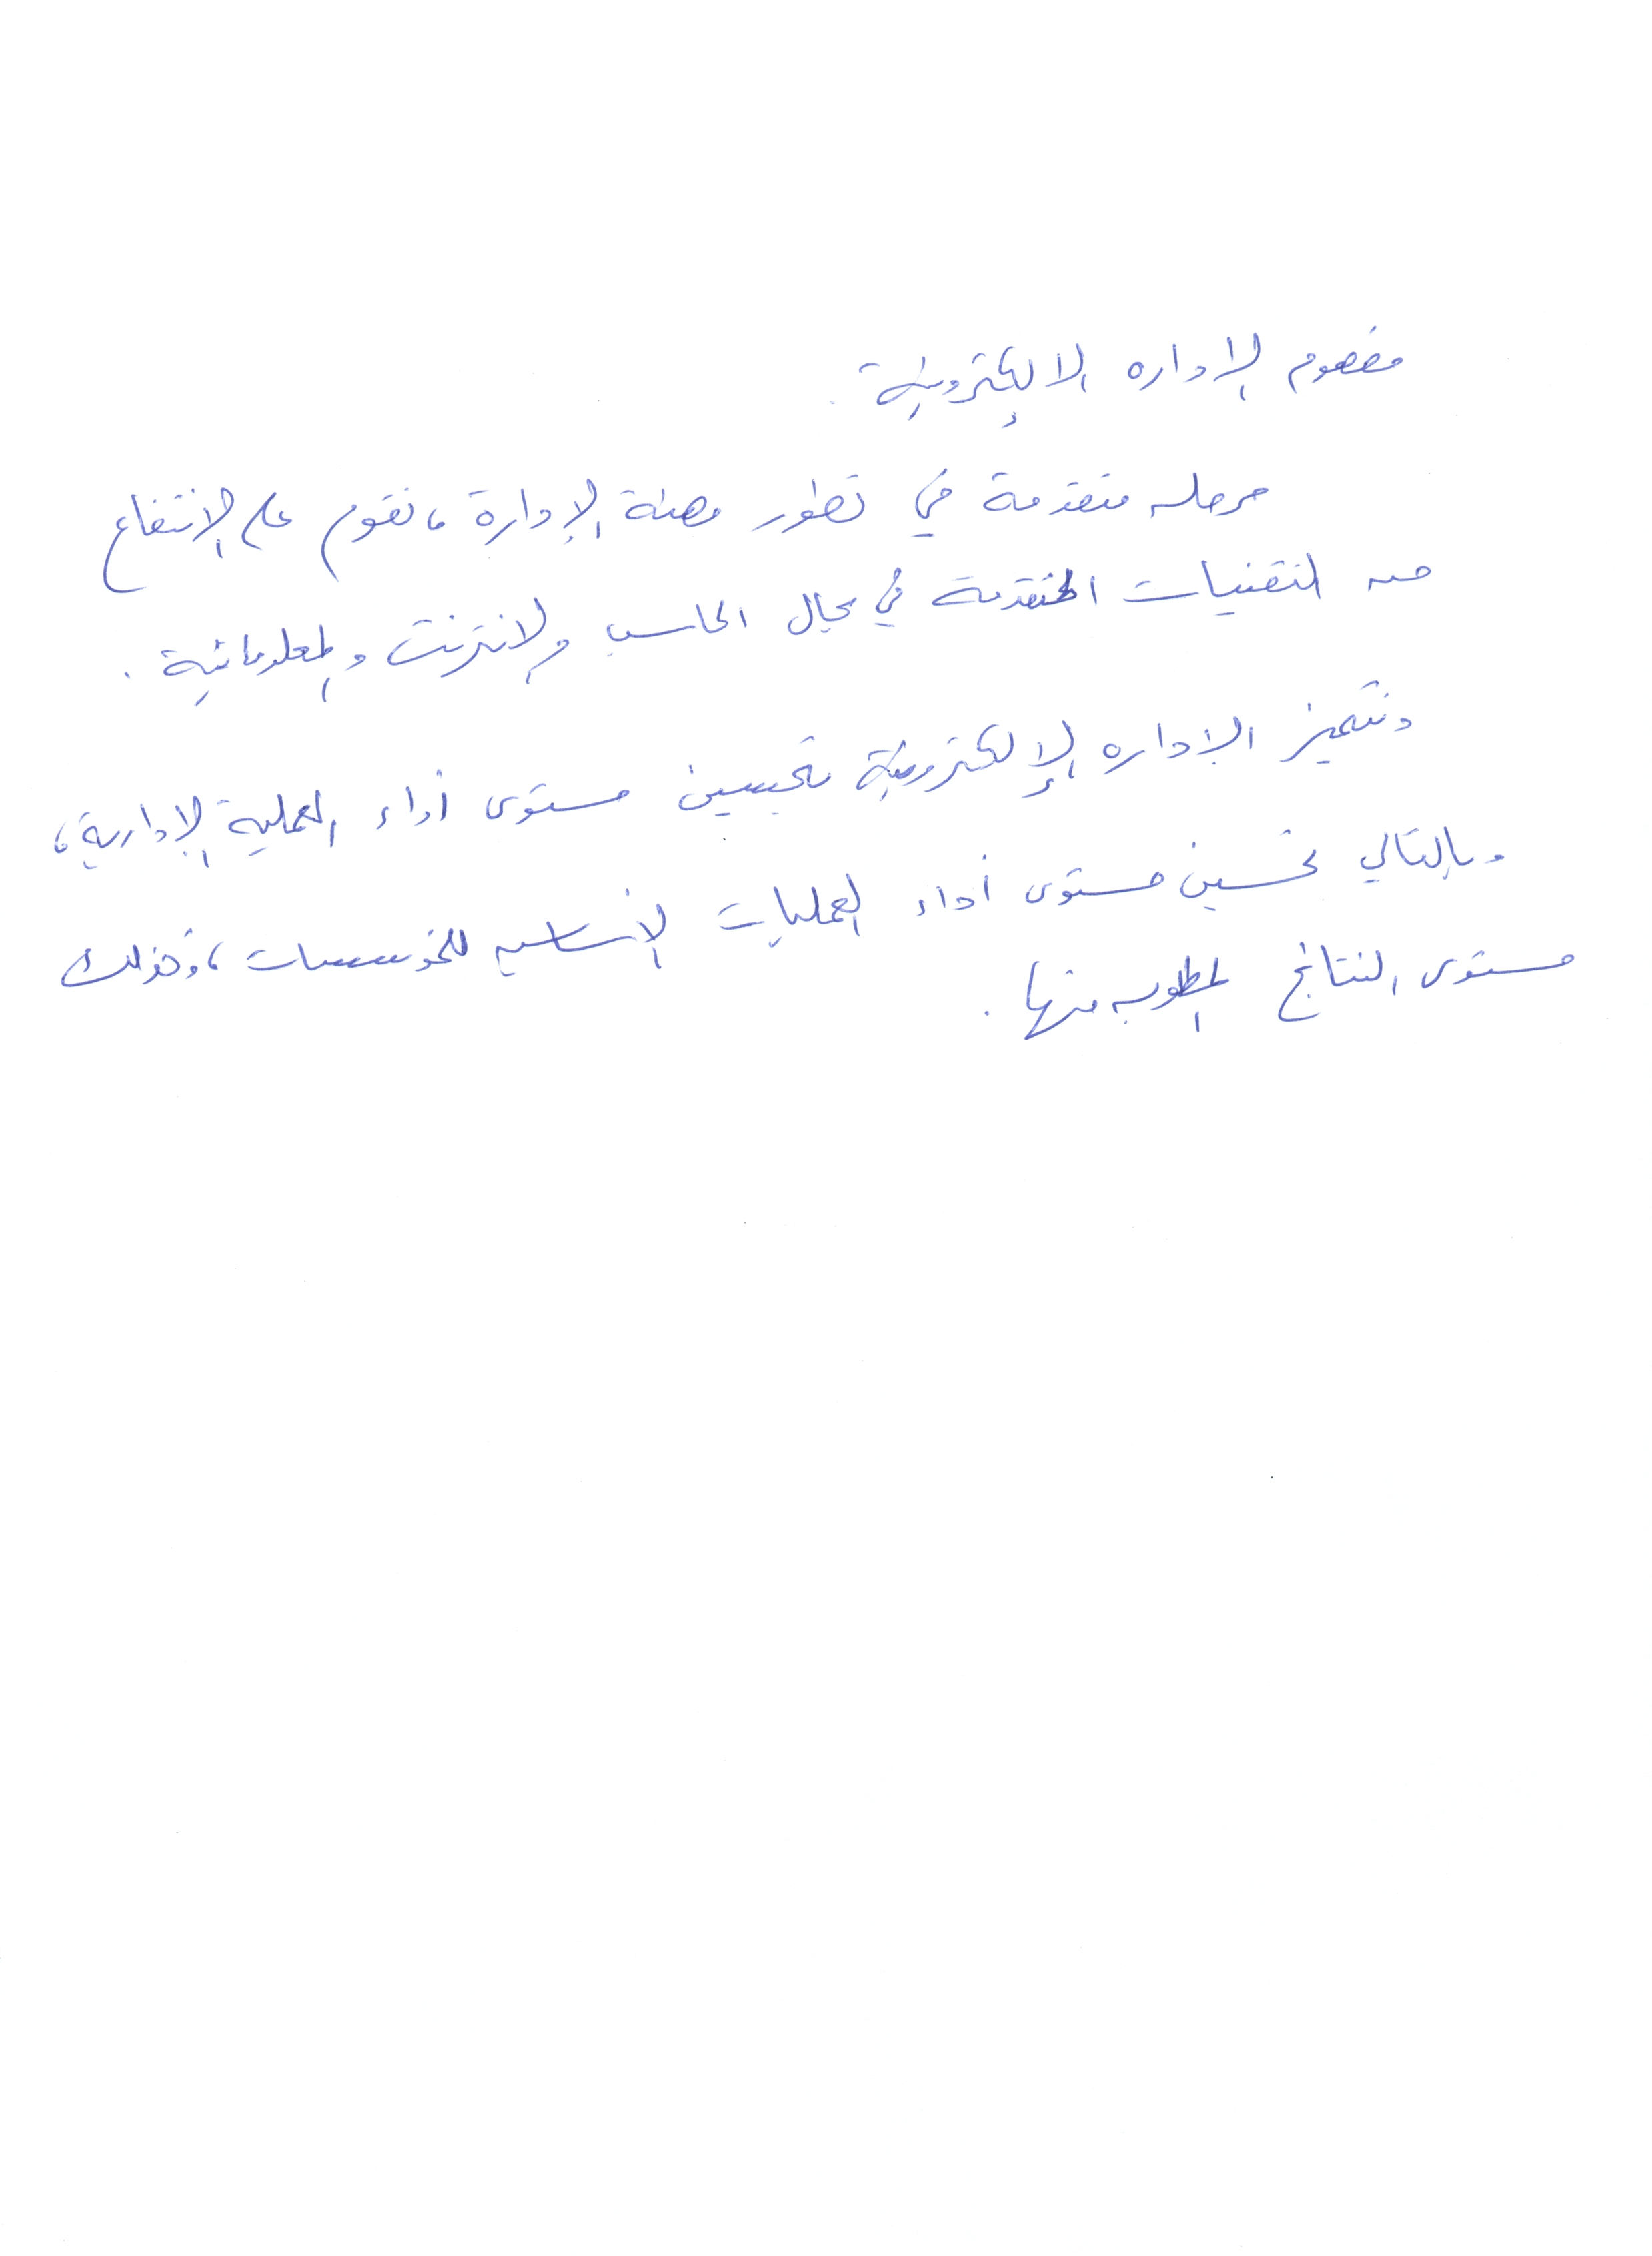 مفهوم الإداره الالكترونية .
مرحله متقدمة في تطور مهنة الإدارة، تقوم على الانتفاع
من التقنيات المتقدمة في مجال الحاسب والانترنت والمعلوماتية .
وتتميز الاداره الإلكترونية بتحسين مستوى أداء العملية الإدارية،
وبالتالي تحسين مستوى أداء العمليات الأساسية للمؤسسات، وكذلك
مستوى النتائج المطلوب منها .